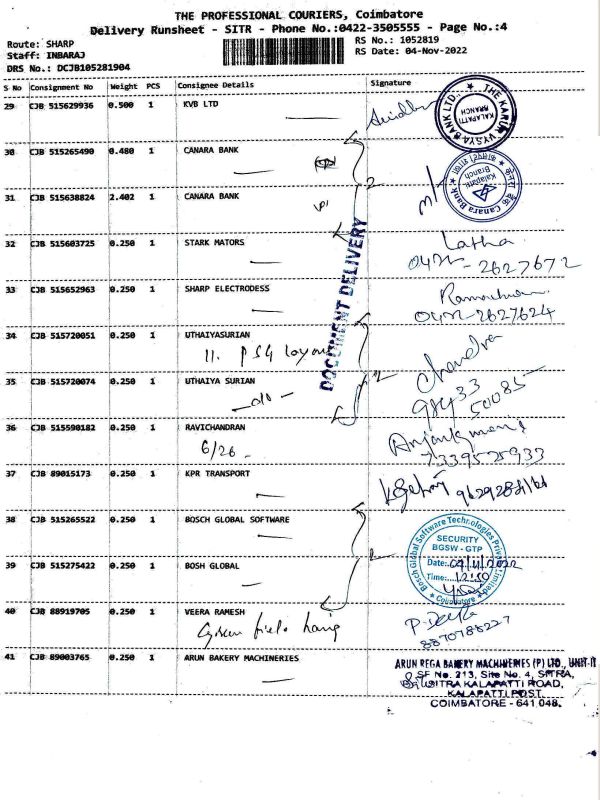 THE PROFESSIONAL COURIERS, Coimbatore
Delivery Runsheet - SITR - Phone No.:0422-3505555 - Page No.:4
Route: SHARP
Staff: INBARAJ
DRS No.: DCJB105281904
RS No.: 1052819
RS Date: 04-Nov-2022
S No Consignment No Weight PCS Consignee Details Signature
29 CJB 515629936 0.500 1 KVB LTD
THE KARUR VYSYA BANK LTD.
KALAPATTI BRANCH
30 CJB 515265490 0.480 1 CANARA BANK
Kalapatti Branch
Canara Bank
31 CJB 515638824 2.402 1 CANARA BANK
DOCUMENT DELIVERY
32 CJB 515603725 0.250 1 STARK MATORS Latha
0422-2627672
33 CJB 515652963 0.250 1 SHARP ELECTRODESS
0422-2627624
34 CJB 515720051 0.250 1 UTHAIYASURIAN Chandra
11. PSG layout
35 CJB 515720074 0.250 1 UTHAIYA SURIAN 98433
50085
36 CJB 515590182 0.250 1 RAVICHANDRAN
6/26 - 7339525933
37 CJB 89015173 0.250 1 KPR TRANSPORT
38 CJB 515265522 0.250 1 BOSCH GLOBAL SOFTWARE
Bosch Global Software Technologies Private Limited
SECURITY
BGSW - GTP
Date: 04/11/2022
Time: 12:50
Coimbatore
39 CJB 515275422 0.250 1 BOSH GLOBAL
40 CJB 88919705 0.250 1 VEERA RAMESH
Green field
8870785227
41 CJB 89003765 0.250 1 ARUN BAKERY MACHINERIES
ARUN REGA BAKERY MACHINERIES (P) LTD., UNIT-II
SF No. 213, Site No. 4, SITRA,
SITRA KALAPATTI ROAD,
KALAPATTI POST
COIMBATORE - 641 048.